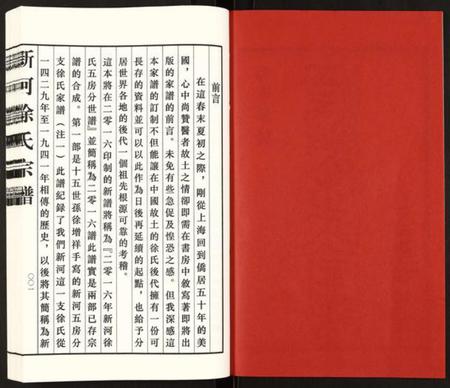 前言
在這春末夏初之際，剛從上海回到僑居五十年的美
國，心中尚贊醫者故土之情卻即需在書房中敘寫著即將出
版的家譜的前言。未免有些急促及惶恐之感。但我深感這
本家譜的訂制不但能讓在中國故土的徐氏後代擁有一份可
長存的資料並可以以此作為日後再延續的起點，也給予分
居世界各地的後代一個祖先根源可靠的考稽。
這本將在二零一六印制的新譜將稱為『二零一六年新河徐
氏五房分世譜』並簡稱為二零一六譜此譜實是兩部已存宗
譜的合成。第一部是十五世孫徐增祥手寫的新河五房分
支徐氏家譜（注一）此譜紀録了我們新河這一支徐氏從
一四二九年至一九四一年相傳的歷史，以後將其簡稱為新
新河徐氏宗譜
〇〇一